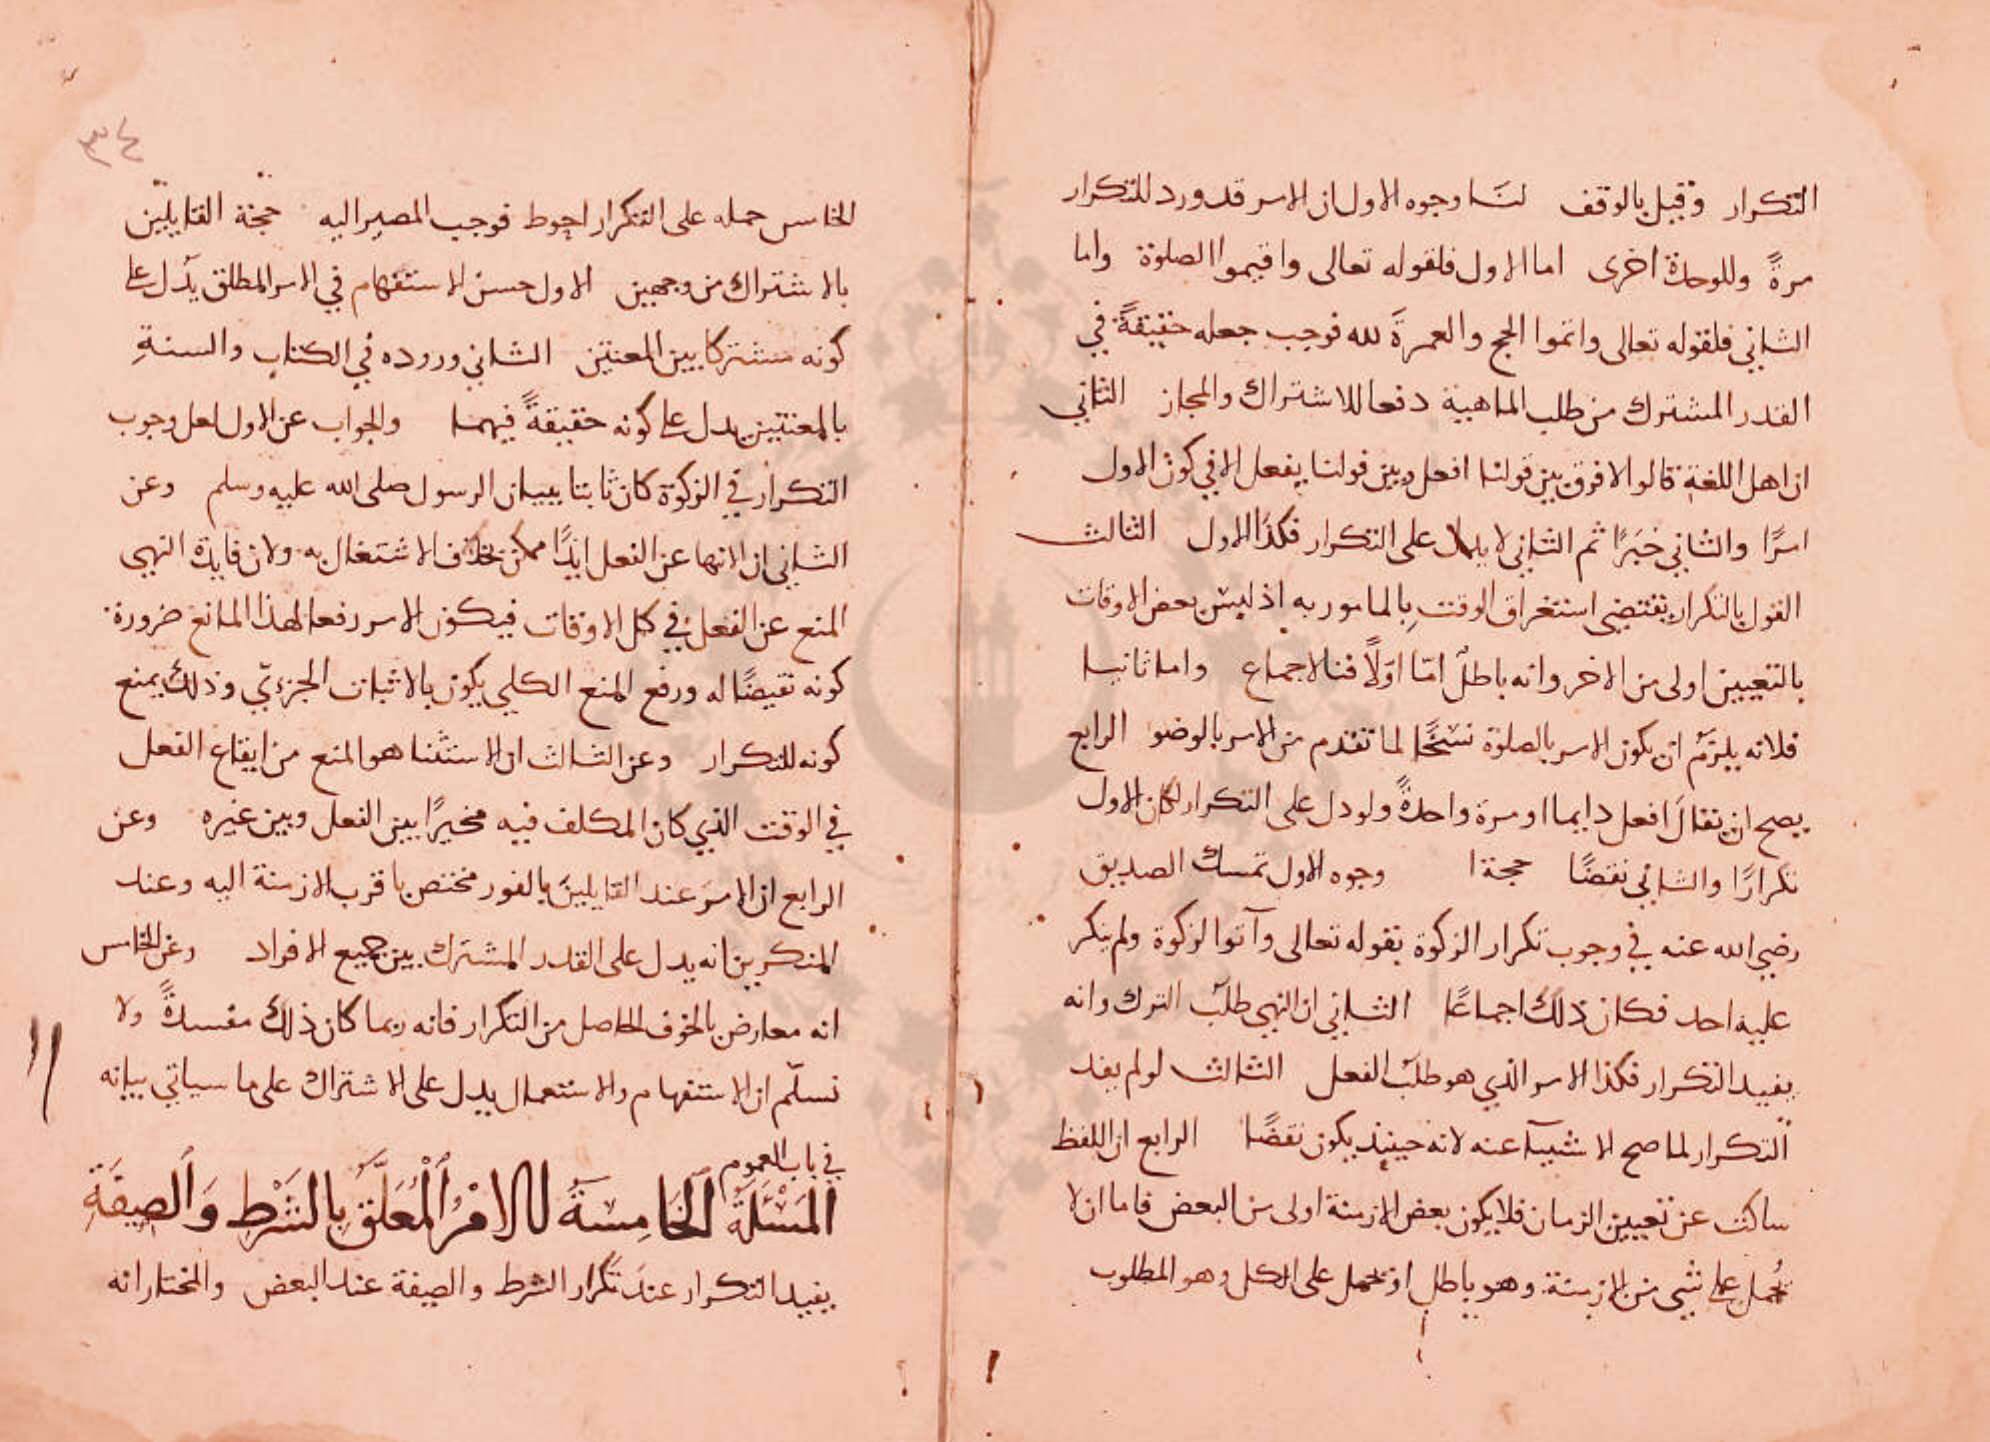 التكرار وقيل بالوقف لنا وجوه الاول ان الامر قد ورد للتكرار
مرةً وللوحدة اخرى اما الاول فلقوله تعالى واقيموا الصلوة واما
الثاني فلقوله تعالى واتموا الحج والعمرةَ لله فوجب جعله حقيقةً في
القدر المشترك من طلب الماهية دفعا للاشتراك والمجاز الثاني
ان اهل اللغة قالوا لا فرق بين قولنا افعل وبين قولنا يفعل الا في كون الاول
امرًا والثاني خبَرًا ثم الثاني لا يدل على التكرار فكذا الاول الثالث
القول بالتكرار يقتضي استغراق الوقت بالمامور به اذ ليس بعض الاوقات
بالتعيين اولى من الاخر وانه باطلٌ امّا اوّلًا فبالاجماع واما ثانيا
فلانه يلزم ان يكون الامر بالصلوة نسخًا لما تقدم من الامر بالوضو الرابع
يصح ان يقال افعل دايما او مرة واحدةً ولو دل على التكرار لكان الاول
تكرارًا والثاني نقضًا حجة ا وجوه الاول تمسك الصديق
رضي الله عنه في وجوب تكرار الزكوة بقوله تعالى وآتوا لزكوة ولم ينكر
عليه احد فكان ذلك اجماعًا الثاني ان النهي طلب الترك وانه
يفيد التكرار فكذا الامر الذي هو طلب الفعل الثالث لو لم يفد
التكرار لما صح الا ستثنا عنه لانه حينيذ يكون نقضًا الرابع ان اللفظ
ساكت عن تعيين الزمان فلا يكون بعض الازمنة اولى من البعض فاما ان لا
يُحمل على شي من الازمنة وهو باطل او يحمل على الكل وهو المطلوب
٣٤
الخامس حمله على التكرار احوط فوجب المصير اليه حجة القايلين
بالاشتراك من وجهين الاول حسن الاستفهام في الامر المطلق يدل على
كونه مشتركا بين المعنيين الثاني وروده في الكتاب والسنةِ
بالمعنيين يدل على كونه حقيقةً فيهما والجواب عن الاول لعل وجوب
التكرار في الزكوة كان ثابتا ببيان الرسول صلى الله عليه وسلم وعن
الثاني ان الانتها عن الفعل ابدًا ممكن بخلاف الاشتغال به ولان فايدة النهي
المنع عن الفعل في كل الاوقات فيكون الامر رفعا لهذا المانع ضرورة
كونه نقيضًا له ورفع المنع الكلي يكون بالاثبات الجزءيّ وذلك يمنع
كونه للتكرار وعن الثالث ان الاستثنا هو المنع من ايقاع الفعل
في الوقت الذي كان المكلف فيه مخيرًا بين الفعل وبين غيره وعن
الرابع ان الامر عند القايلين بالفور مختص باقرب الازمنة اليه وعند
المنكرين انه يدل على القدر المشترك بين جميع الافراد وعن الخامس
انه معارض بالخوف الحاصل من التكرار فانه ربما كان ذلك مفسدةً ولا
نسلّم ان الاستفهام والاستعمال يدل على الاشتراك على ما سياتي بيانه
في باب العموم
المَسْئَلَةُ الخَامِسَةُ الامْرُ المُعَلَّقُ بِالشَرْطِ وَالصِفَةِ
يفيد التكرار عند تكرار الشرط والصفة عند البعض والمختار انه